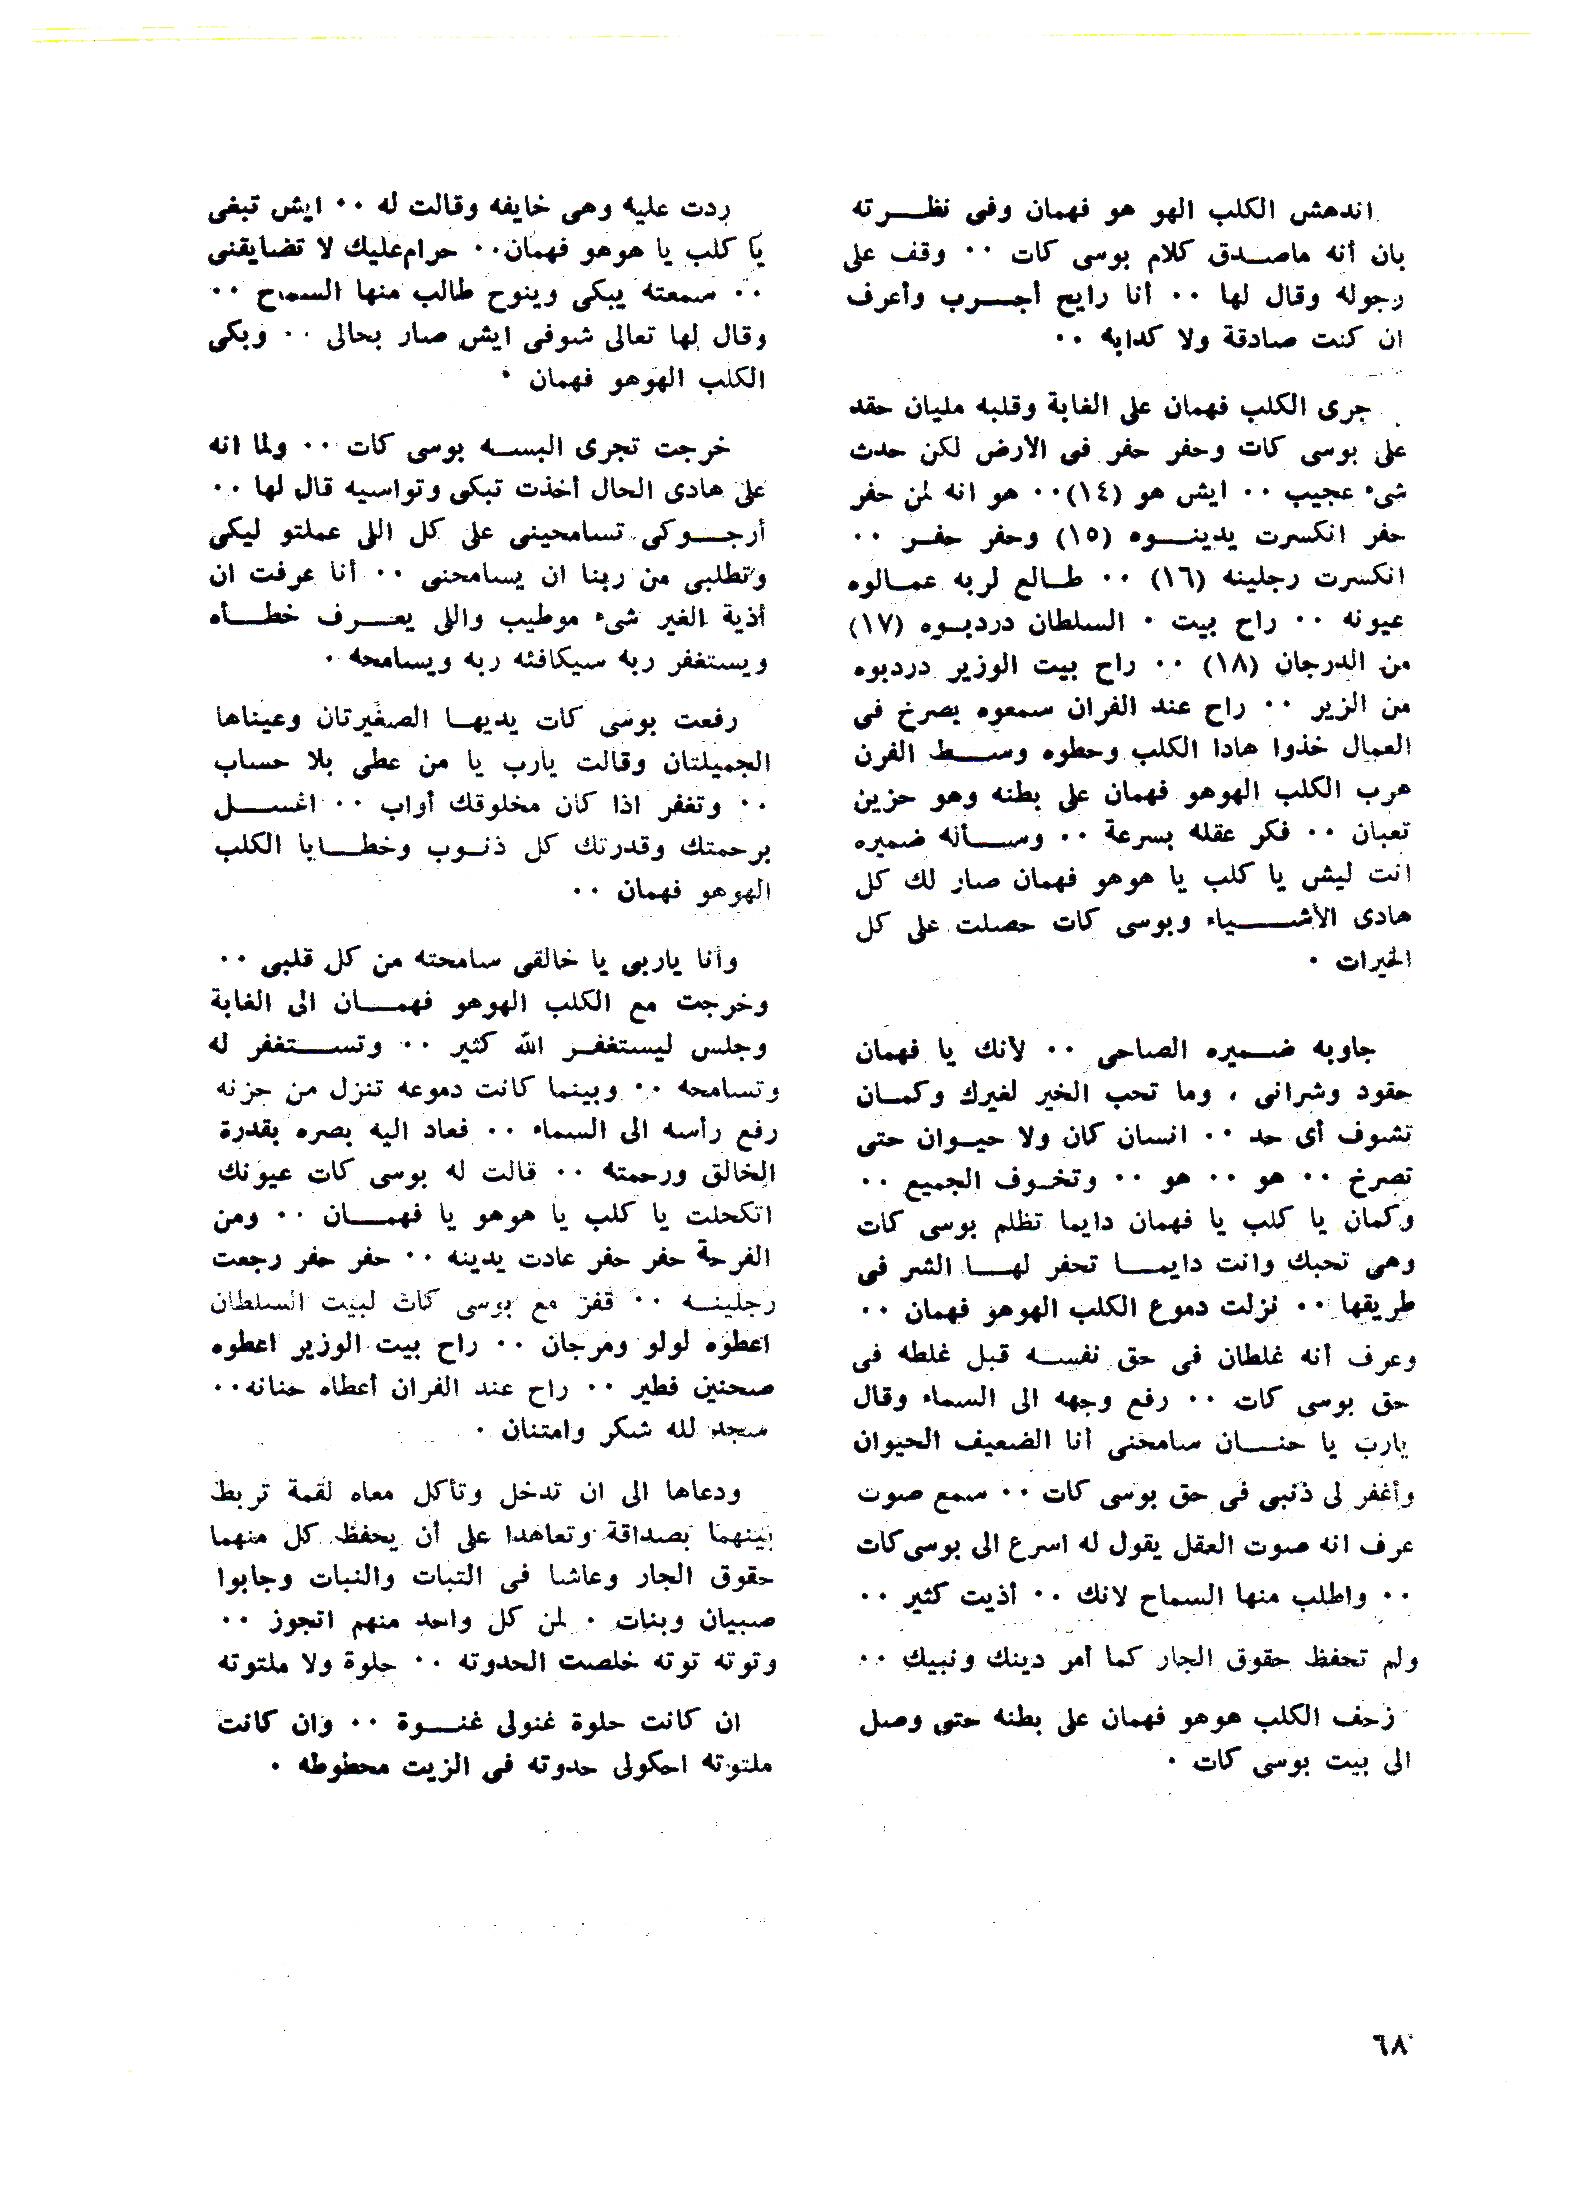 اندهش الكلب الهو هو فهمان وفى نظرته
بان أنه ماصدق كلام بوسى كات ٠٠ وقف على
رجوله وقال لها ٠٠ أنا رايح أجرب وأعرف
ان كنت صادقة ولا كدابه ٠٠
جرى الكلب فهمان على الغابة وقلبه مليان حقد
على بوسى كات وحفر حفر فى الأرض لكن حدث
شىء عجيب ٠٠ ايش هو (١٤)٠٠ هو انه لمن حفر
حفر انكسرت يدينوه (١٥) وحفر حفر ٠٠
انكسرت رجلينه (١٦) ٠٠ طالع لربه عمالوه
عيونه ٠٠ راح بيت ٠ السلطان دردبوه (١٧)
من الدرجان (١٨) ٠٠ راح بيت الوزير دردبوه
من الزير ٠٠ راح عند الفران سمعوه يصرخ فى
العمال خذوا هادا الكلب وحطوه وسط الفرن
هرب الكلب الهوهو فهمان على بطنه وهو حزين
تعبان ٠٠ فكر عقله بسرعة ٠٠ وسأله ضميره
انت ليش يا كلب يا هوهو فهمان صار لك كل
هادى الأشياء وبوسى كات حصلت على كل
الخيرات ٠
جاوبه ضميره الصاحى ٠٠ لأنك يا فهمان
حقود وشرانى ، وما تحب الخير لغيرك وكمان
تشوف أى حد ٠٠ انسان كان ولا حيوان حتى
تصرخ ٠٠ هو ٠٠ هو ٠٠ وتخوف الجميع ٠٠
وكمان يا كلب يا فهمان دايما تظلم بوسى كات
وهى تحبك وانت دايما تحفر لها الشر فى
طريقها ٠٠ نزلت دموع الكلب الهوهو فهمان ٠٠
وعرف أنه غلطان فى حق نفسه قبل غلطه فى
حق بوسى كات ٠٠ رفع وجهه الى السماء وقال
يارب يا حنان سامحنى أنا الضعيف الحيوان
وأغفر لى ذنبى فى حق بوسى كات ٠٠ سمع صوت
عرف انه صوت العقل يقول له اسرع الى بوسى كات
٠٠ واطلب منها السماح لانك ٠٠ أذيت كثير ٠٠
ولم تحفظ حقوق الجار كما أمر دينك ونبيك ٠٠
زحف الكلب هوهو فهمان على بطنه حتى وصل
الى بيت بوسى كات ٠
ردت عليه وهى خايفه وقالت له ٠٠ ايش تبغى
يا كلب يا هوهو فهمان٠٠ حرام عليك لا تضايقنى
٠٠ سمعته يبكى وينوح طالب منها السماح ٠٠
وقال لها تعالى شوفى ايش صار بحالى ٠٠ وبكى
الكلب الهوهو فهمان ٠
خرجت تجرى البسه بوسى كات ٠٠ ولما انه
على هادى الحال أخذت تبكى وتواسيه قال لها ٠٠
أرجوكى تسامحينى على كل اللى عملتو ليكى
وتطلبى من ربنا ان يسامحنى ٠٠ أنا عرفت ان
أذية الغير شىء موطيب واللى يعرف خطأه
ويستغفر ربه سيكافئه ربه ويسامحه ٠
رفعت بوسى كات يديها الصغيرتان وعيناها
الجميلتان وقالت يارب يا من عطى بلا حساب
٠٠ وتغفر اذا كان مخلوقك أواب ٠٠ اغسل
برحمتك وقدرتك كل ذنوب وخطايا الكلب
الهوهو فهمان ٠٠
وأنا ياربى يا خالقى سامحته من كل قلبى ٠٠
وخرجت مع الكلب الهوهو فهمان الى الغابة
وجلس ليستغفر الله كثير ٠٠ وتستغفر له
وتسامحه ٠٠ وبينما كانت دموعه تنزل من حزنه
رفع رأسه الى السماء ٠٠ فعاد اليه بصره بقدرة
الخالق ورحمته ٠٠ قالت له بوسى كات عيونك
اتكحلت يا كلب يا هوهو يا فهمان ٠٠ ومن
الفرحة حفر حفر عادت يدينه ٠٠ حفر حفر رجعت
رجلينه ٠٠ قفز مع بوسى كات لبيت السلطان
اعطوه لولو ومرجان ٠٠ راح بيت الوزير اعطوه
صحنين فطير ٠٠ راح عند الفران أعطاه حنانه٠٠
سجد لله شكر وامتنان ٠
ودعاها الى ان تدخل وتأكل معاه لقمة تربط
بينهما بصداقة وتعاهدا على أن يحفظ كل منهما
حقوق الجار وعاشا فى التبات والنبات وجابوا
صبيان وبنات ٠ لمن كل واحد منهم اتجوز ٠٠
وتوته توته خلصت الحدوته ٠٠ حلوة ولا ملتوته
ان كانت حلوة غنولى غنوة ٠٠ وان كانت
ملتوته احكولى حدوته فى الزيت محطوطه ٠
٦٨